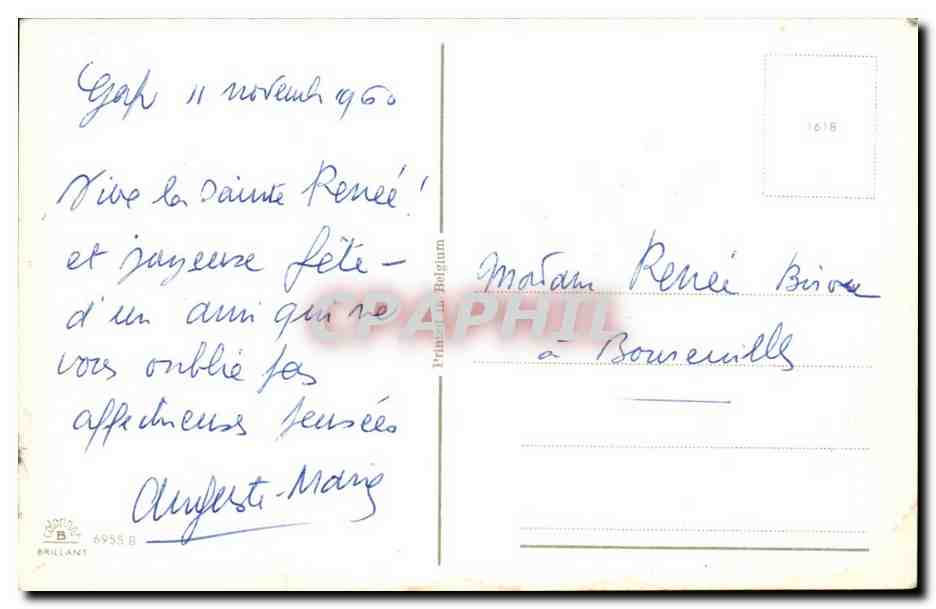 Gap 11 novembre 1960
Vive la Sainte Renée!
et joyeuse fête -
d'un ami qui ne
vous oublie pas
affectueuses pensées
Auguste-Marie
6955 B
B
BRILLANT
Printed in Belgium
CPAPHIL
1618
Madame Renée
à